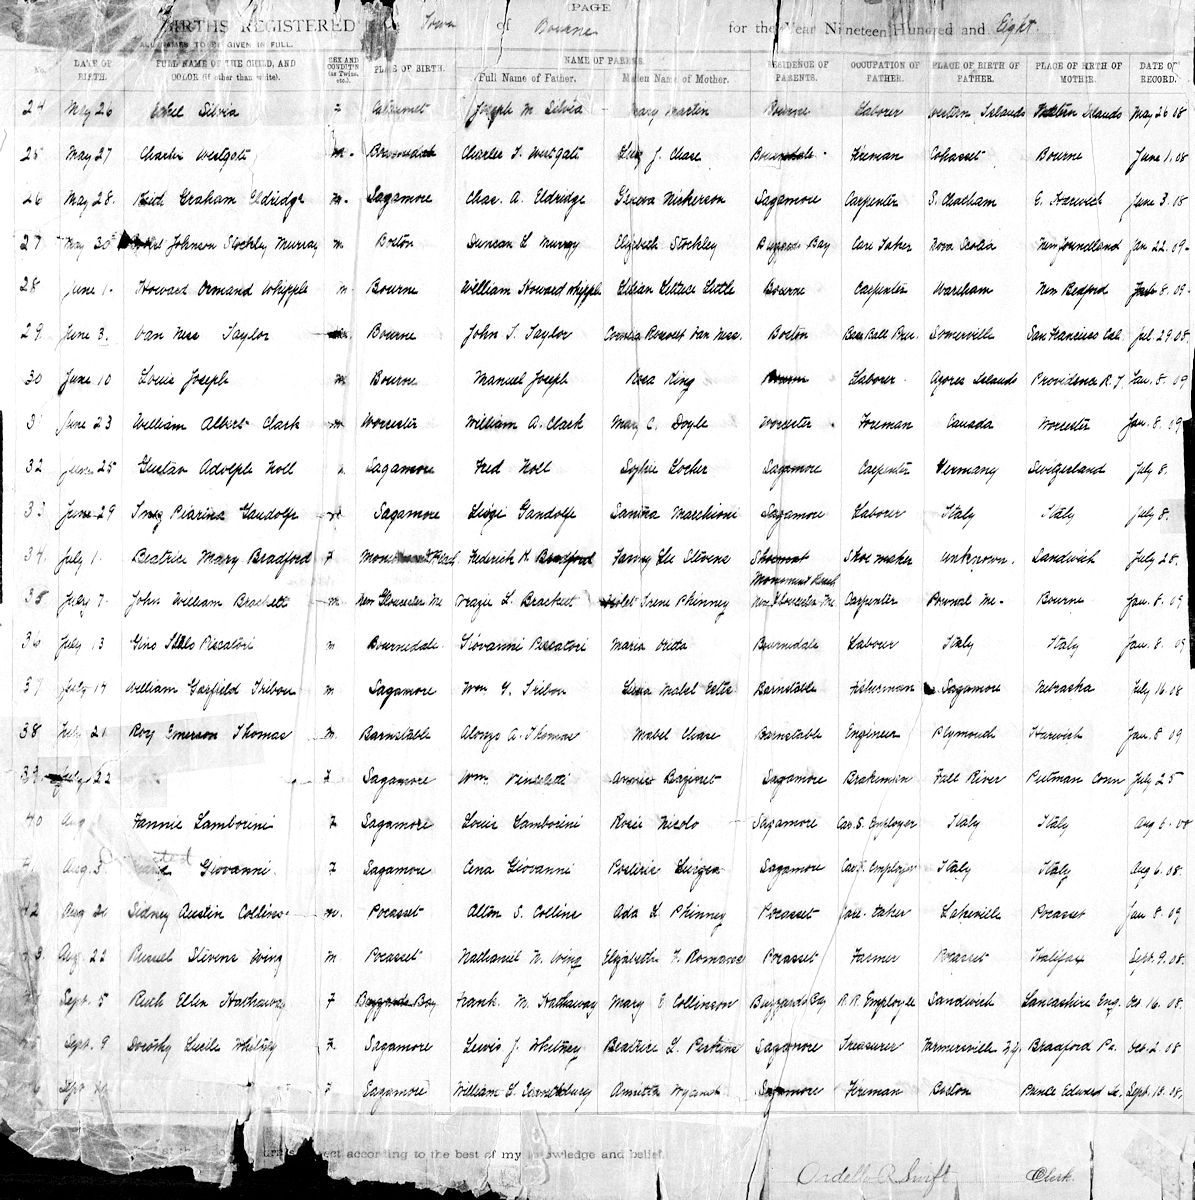 PAGE
BIRTHS REGISTERED Town of Bourne for the Year Nineteen Hundred and Eight.
ALL NAMES TO BE GIVEN IN FULL.
No. DATE OF BIRTH. FULL NAME OF THE CHILD, AND COLOR (if other than white). SEX AND CONDIT'N (as Twins, etc.) PLACE OF BIRTH. NAME OF PARENTS. Full Name of Father. Maiden Name of Mother. RESIDENCE OF PARENTS. OCCUPATION OF FATHER. PLACE OF BIRTH OF FATHER. PLACE OF BIRTH OF MOTHER. DATE OF RECORD.
24 May 26 Ethel Silvia F Cataumet Joseph M. Silvia Mary Martin Bourne Laborer Western Islands Western Islands May 26 08
25 May 27 Charles Westgate m. Bournedale Charles T. Westgate J. Chase Bournedale. Fireman Cohasset Bourne June 1. 08
26 May 28. Reid Graham Eldridge m. Sagamore Chas. A. Eldridge Geneva Nickerson Sagamore Carpenter S. Chatham E. Harwich June 3. 08
27 May 30 Johnson Stockley Murray m Boston Duncan L. Murray Elizabeth Stockley Buzzards Bay Care Taker Nova Scotia Newfoundland Jan 22. 09
28 June 1. Howard Ormand Whipple m. Bourne William Howard Whipple Lilian Lettuce Little Bourne Carpenter Wareham New Bedford 8. 09.
29 June 3. Van Ness Taylor m. Bourne John I. Taylor Cornelia Roosevelt Van Ness. Boston Base Ball Pres. Somerville San Francisco Cal. Jul. 29 08.
30 June 10 Louis Joseph m. Bourne Manuel Joseph Rosa King Bourne Laborer Azores Islands Providence R.I. Jan. 8. 09
31 June 23 William Albert Clark m Worcester William A. Clark Mary C. Doyle Worcester Foreman Canada Worcester Jan. 8. 09
32 June 25 Gustav Adolph Noll Sagamore Fred Noll Sophie Locher Sagamore Carpenter Germany Switzerland July 8.
33 June 29 Pearina Gandolfe Sagamore Luigi Gandolfe Santina Marchioni Sagamore Laborer Italy Italy July 8.
34. July 1. Beatrice Mary Bradford F Monument Beach Frederick K. Bradford Fanny Lee Stevens Monument Beach Shoemaker unknown. Sandwich July 28.
35 July 7. John William Brackett m. New Gloucester Me L. Brackett Violet Irene Phinney New Gloucester Me. Carpenter Pownal Me. Bourne Jan. 8. 09
36 July 13 Gino Piscatori m Bournedale Giovanni Piscatori Maria Bournedale Labourer Italy Italy Jan. 8. 09
37 July 14 William Garfield Tribou m Sagamore Wm. G. Tribou Mabel Barnstable Fisherman Sagamore Nebraska July 16. 08
38 July 21 Roy Emerson Thomas m. Barnstable Alonzo A. Thomas Mabel Chase Barnstable Engineer Plymouth Harwich Jan. 8 09
39 July 22 F Sagamore Wm. Annie Sagamore Brakeman Fall River Putman Conn July 25
40 Aug Fannie Lamborini F Sagamore Louis Lamborini Rosie Nicolo Sagamore Car. S. Employee Italy Italy Aug 6. 08
41 Aug. 3. Giovanni F Sagamore Giovanni Sagamore Car S. Employee Italy Italy Aug 6. 08.
42 Aug 21 Sidney Austin Collins m. Pocasset Alton S. Collins Ada L. Phinney Pocasset Care-taker Lakeville Pocasset Jan 8. 09
43. Aug. 22 Russell Stevens Wing m Pocasset Nathaniel N. Wing Elizabeth Romance Pocasset Farmer Pocasset Halifax Sept. 9. 08.
Sept. 5 Ruth Ellen Hathaway F Buzzards Bay Frank. M. Hathaway Mary E Collinson Buzzards Bay R.R. Employee Sandwich Lancashire Eng. Oct 16. 08.
Sept. 9 Dorothy Lucile Whitney F. Sagamore Lewis J. Whitney Beatrice L. Perkins Sagamore Treasurer Bradford Pa. Oct. 2. 08
Sept. F Sagamore William Sagamore Fireman Boston Prince Edward Is. Sept. 13. 08.
correct according to the best of my knowledge and belief.
Ordello R Swift Clerk.